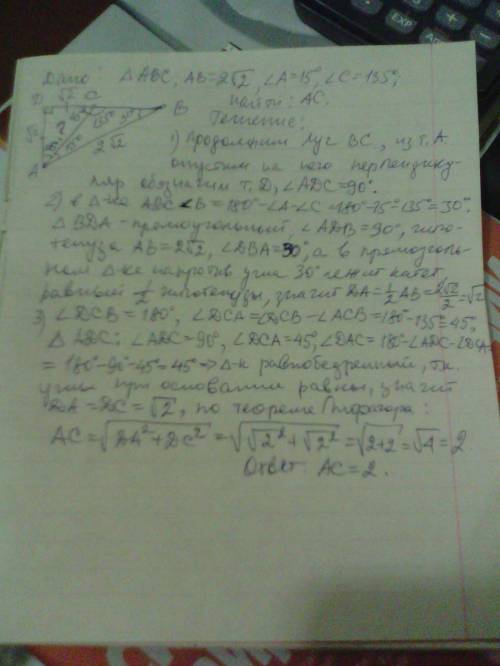 Дано: △ABC, AB=2√2, ∠A=15°, ∠C=135°;
Найти: AC.
Решение:
D √2 C B
√2 ? 45° 135° 30°
45° 15° 2√2
A
1) Продолжим луч BC, из т. A
опустим на него перпендику-
ляр обозначим т. D, ∠ADC=90°.
2) в △-ке ABC ∠B=180°-∠A-∠C=180°-15°-135°=30°.
△BDA - прямоугольный, ∠ADB=90°, гипо-
тенуза AB=2√2, ∠DBA=30°, а в прямоуголь-
ном △-ке напротив угла 30° лежит катет,
равный 1/2 гипотенузы, значит DA=1/2 AB=2√2/2=√2
3) ∠DCB=180°, ∠DCA=∠DCB-∠ACB=180°-135°=45°,
△ADC: ∠ADC=90°, ∠DCA=45°, ∠DAC=180°-∠ADC-∠DCA=
=180°-90°-45°=45° ⇒ △-к равнобедренный, т.к.
углы при основании равны, значит
DA=DC=√2, по теореме Пифагора:
AC=√DA²+DC²=√√2²+√2²=√2+2=√4=2
Ответ: AC=2.
EXP